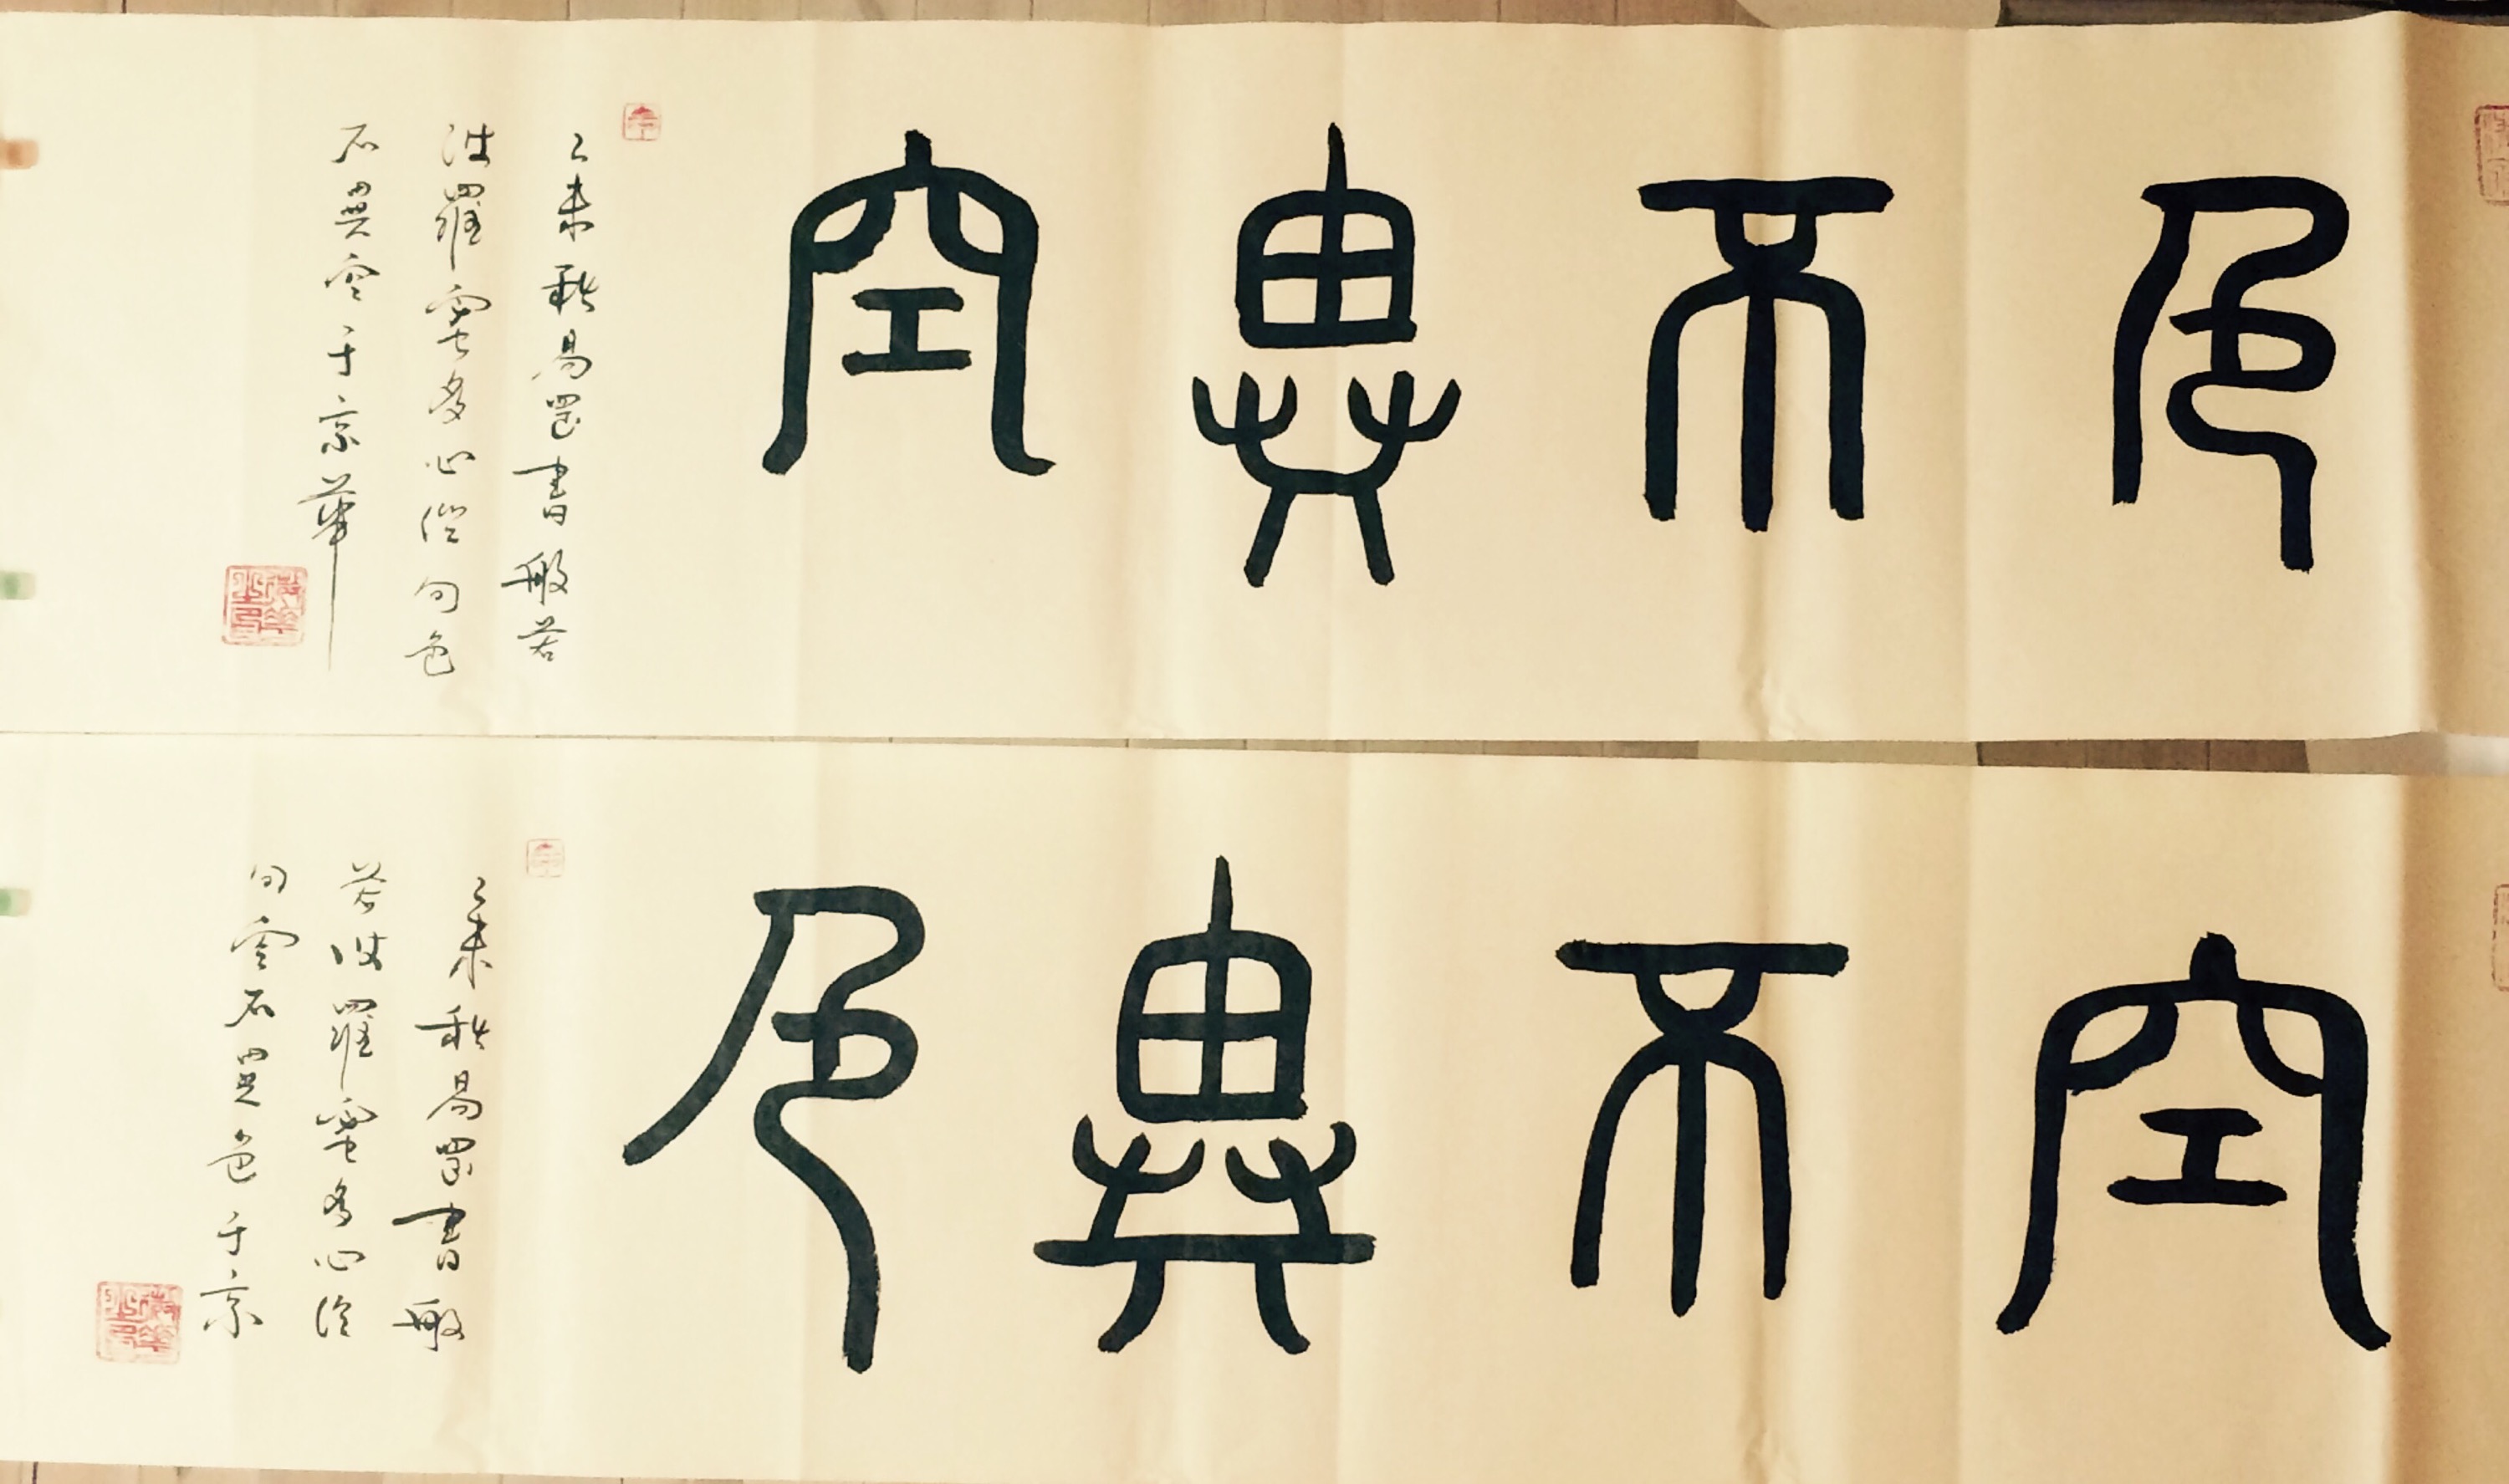 色不異空
乙未秋易罡書般若
波羅蜜多心經句色
不異空于京華
空不異色
乙未秋易罡書般
若波羅蜜多心經
句空不異色于京